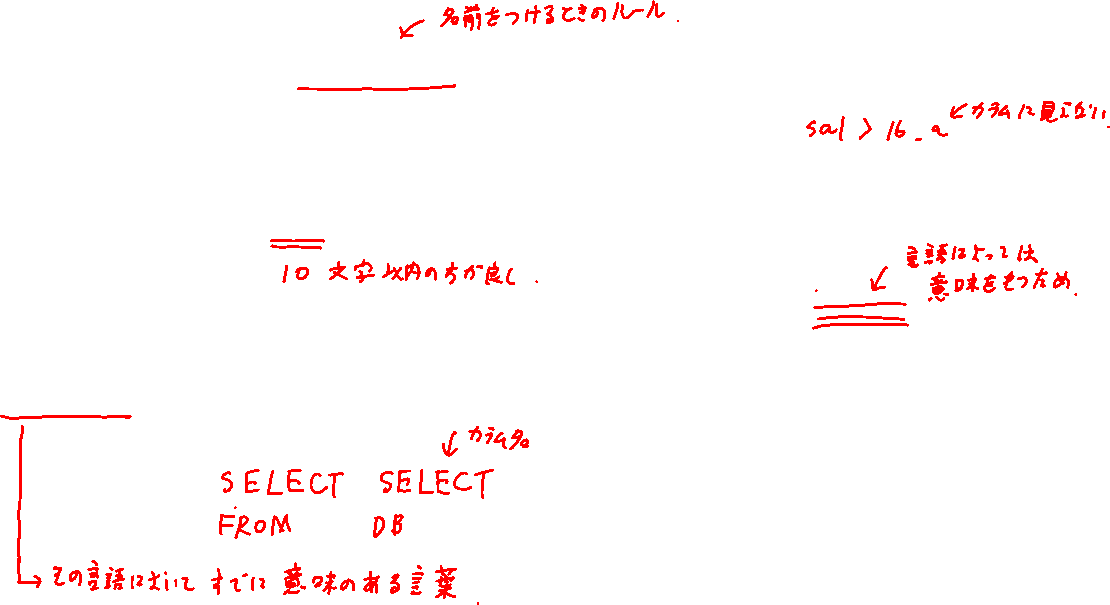 名前をつけるときのルール.
sal > 16_a
カラムに見えない.
10 文字以内の方が良し.
言語によっては
意味をもつため.
カラム名
SELECT SELECT
FROM DB
その言語においてすでに意味のある言葉.